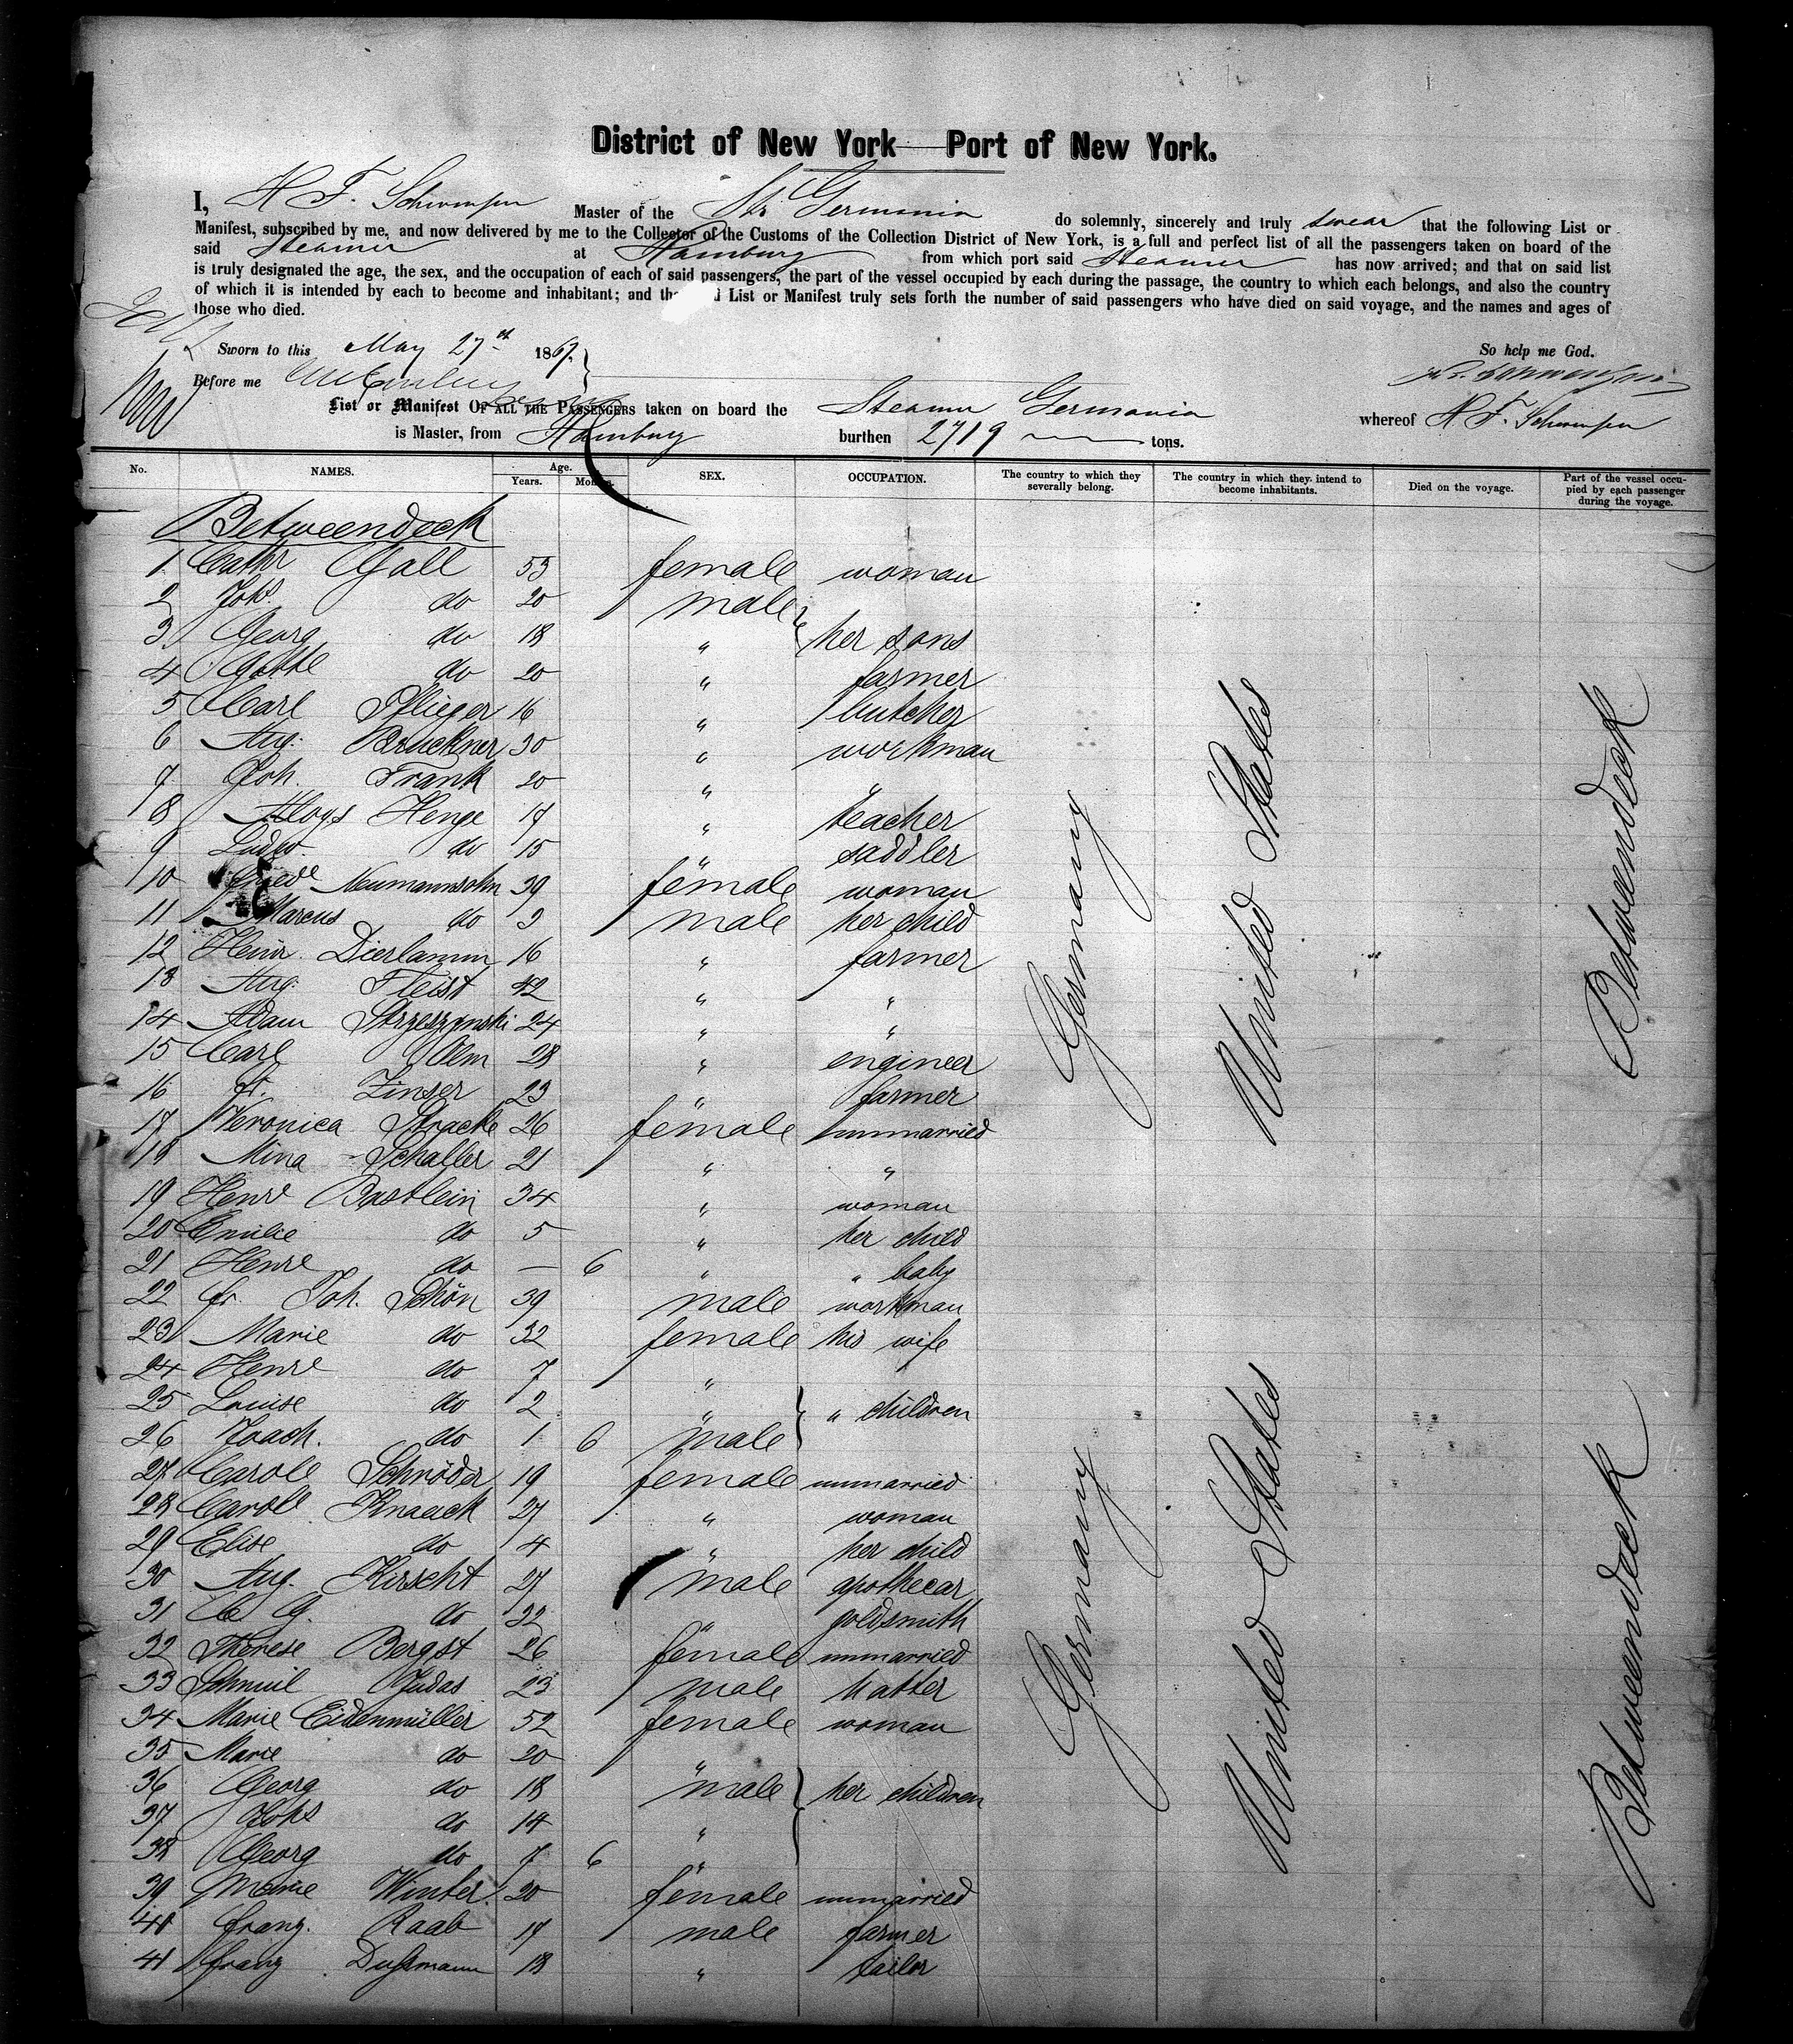 District of New York — Port of New York.
I, H. F. Schwensen Master of the Str Germania do solemnly, sincerely and truly swear that the following List or
Manifest, subscribed by me, and now delivered by me to the Collector of the Customs of the Collection District of New York, is a full and perfect list of all the passengers taken on board of the
said Steamer at Hamburg from which port said Steamer has now arrived; and that on said list
is truly designated the age, the sex, and the occupation of each of said passengers, the part of the vessel occupied by each during the passage, the country to which each belongs, and also the country
of which it is intended by each to become and inhabitant; and tha List or Manifest truly sets forth the number of said passengers who have died on said voyage, and the names and ages of
those who died.
Sworn to this May 27th 1867.
So help me God.
Before me
List or Manifest OF ALL THE PASSENGERS taken on board the Steamer Germania whereof H. F. Schwensen
is Master, from Hamburg burthen 2719 tons.
No. NAMES. Age. Years. Months. SEX. OCCUPATION. The country to which they severally belong. The country in which they intend to become inhabitants. Died on the voyage. Part of the vessel occupied by each passenger during the voyage.
Betweendeck
1 Cathr Gall 53 female woman
2 Johs do 20 male
3 Georg do 18 " her sons
4 do 20 " farmer
5 Carl Pflieger 16 " butcher
6 Aug. Bruckner 30 " workman
7 Joh. Frank 20 " "
8 Aloys Henge 17 " teacher
9 Ludw. do 15 " saddler
10 Friede Neumannsohn 39 female woman
11 Marcus do 9 male her child
12 Heinr. Dierlamm 16 " farmer
13 Aug. Fleist 42 " "
14 Adam Strzeszynski 24 " "
15 Carl Ulm 28 " engineer
16 Fr. Zinser 23 " farmer
17 Veronica Stracke 26 female unmarried
18 Mina Schaffer 21 " "
19 Henre Bastlein 34 " woman
20 Emilie do 5 " her child
21 Henre do — 6 " " baby
22 Fr. Joh. Schön 39 male workman
23 Marie do 32 female his wife
24 Henre do 7 "
25 Louise do 2 " " children
26 Joach. do 1 6 male
27 Carole Schröder 19 female unmarried
28 Carole Knaack 27 " woman
29 Elise do 4 " her child
30 Aug. Kirscht 27 male apothecar
31 C. G. do 32 " goldsmith
32 Therese Bergst 26 female unmarried
33 Schmul Judas 23 male hatter
34 Marie Eidenmüller 52 female woman
35 Marie do 20 "
36 Georg do 18 male her children
37 Johs do 14 "
38 Georg do 7 6 "
39 Marie Winter 20 female unmarried
40 Franz. Raab 17 male farmer
41 Franz Dußmann 18 " tailor
Germany
United States
Betweendeck
Germany
United States
Betweendeck